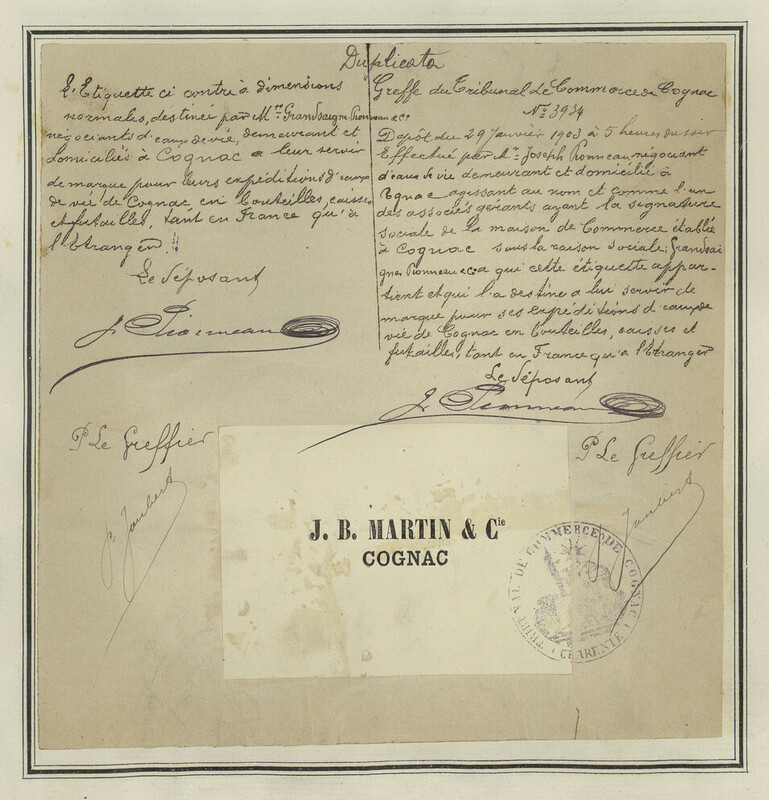 Duplicata
L'Etiquette ci contre à dimensions
normales, destiné par Mrs Grandsaigne Pionneau & Co
négociants d'eaux de vie, demeurant et
domiciliés à Cognac a leur servir
de marque pour leurs expéditions d'eaux
de vie de Cognac, en bouteilles, caisses
et futailles, tant en France qu'à
l'Etranger.
Le Déposant
J. Pionneau
Greffe du Tribunal de Commerce de Cognac
No 3934
Dépôt du 29 Janvier 1903 à 5 heures du soir
Effectué par Mr Joseph Pionneau, négociant
d'eaux de vie demeurant et domicilié à
Cognac agissant au nom et comme l'un
des associés gérants ayant la signature
sociale de la maison de Commerce établie
à Cognac sous la raison sociale, Grandsai
gne Pionneau & Co a qui cette étiquette appar-
tient et qui l'a destiné a lui servir de
marque pour ses expéditions d'eaux de
vie de Cognac en bouteilles, caisses et
futailles, tant en France qu'a l'Etranger
Le Déposant
J. Pionneau
P Le Greffier
Joubert
P Le Greffier
Joubert
J. B. MARTIN & Cie
COGNAC
TRIBUNAL DE COMMERCE DE COGNAC
CHARENTE